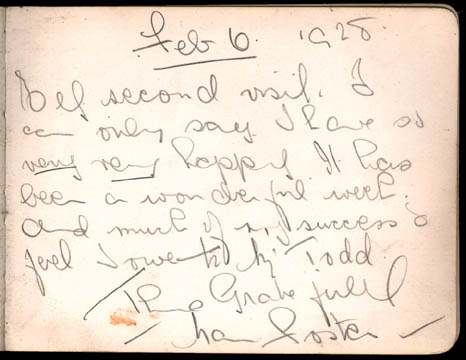 Feb 6. 1928.
second visit. I
can only say I have so
very very happy It has
been a wonderful week.
and much of my success I
feel I owe to Mr Todd.
Foster